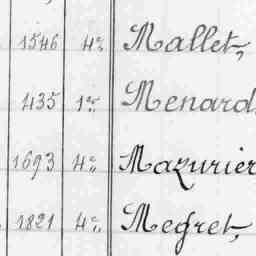 1546 4e Mallet,
435 1er Menard
1693 4e Mazurier
1821 4e Megret,